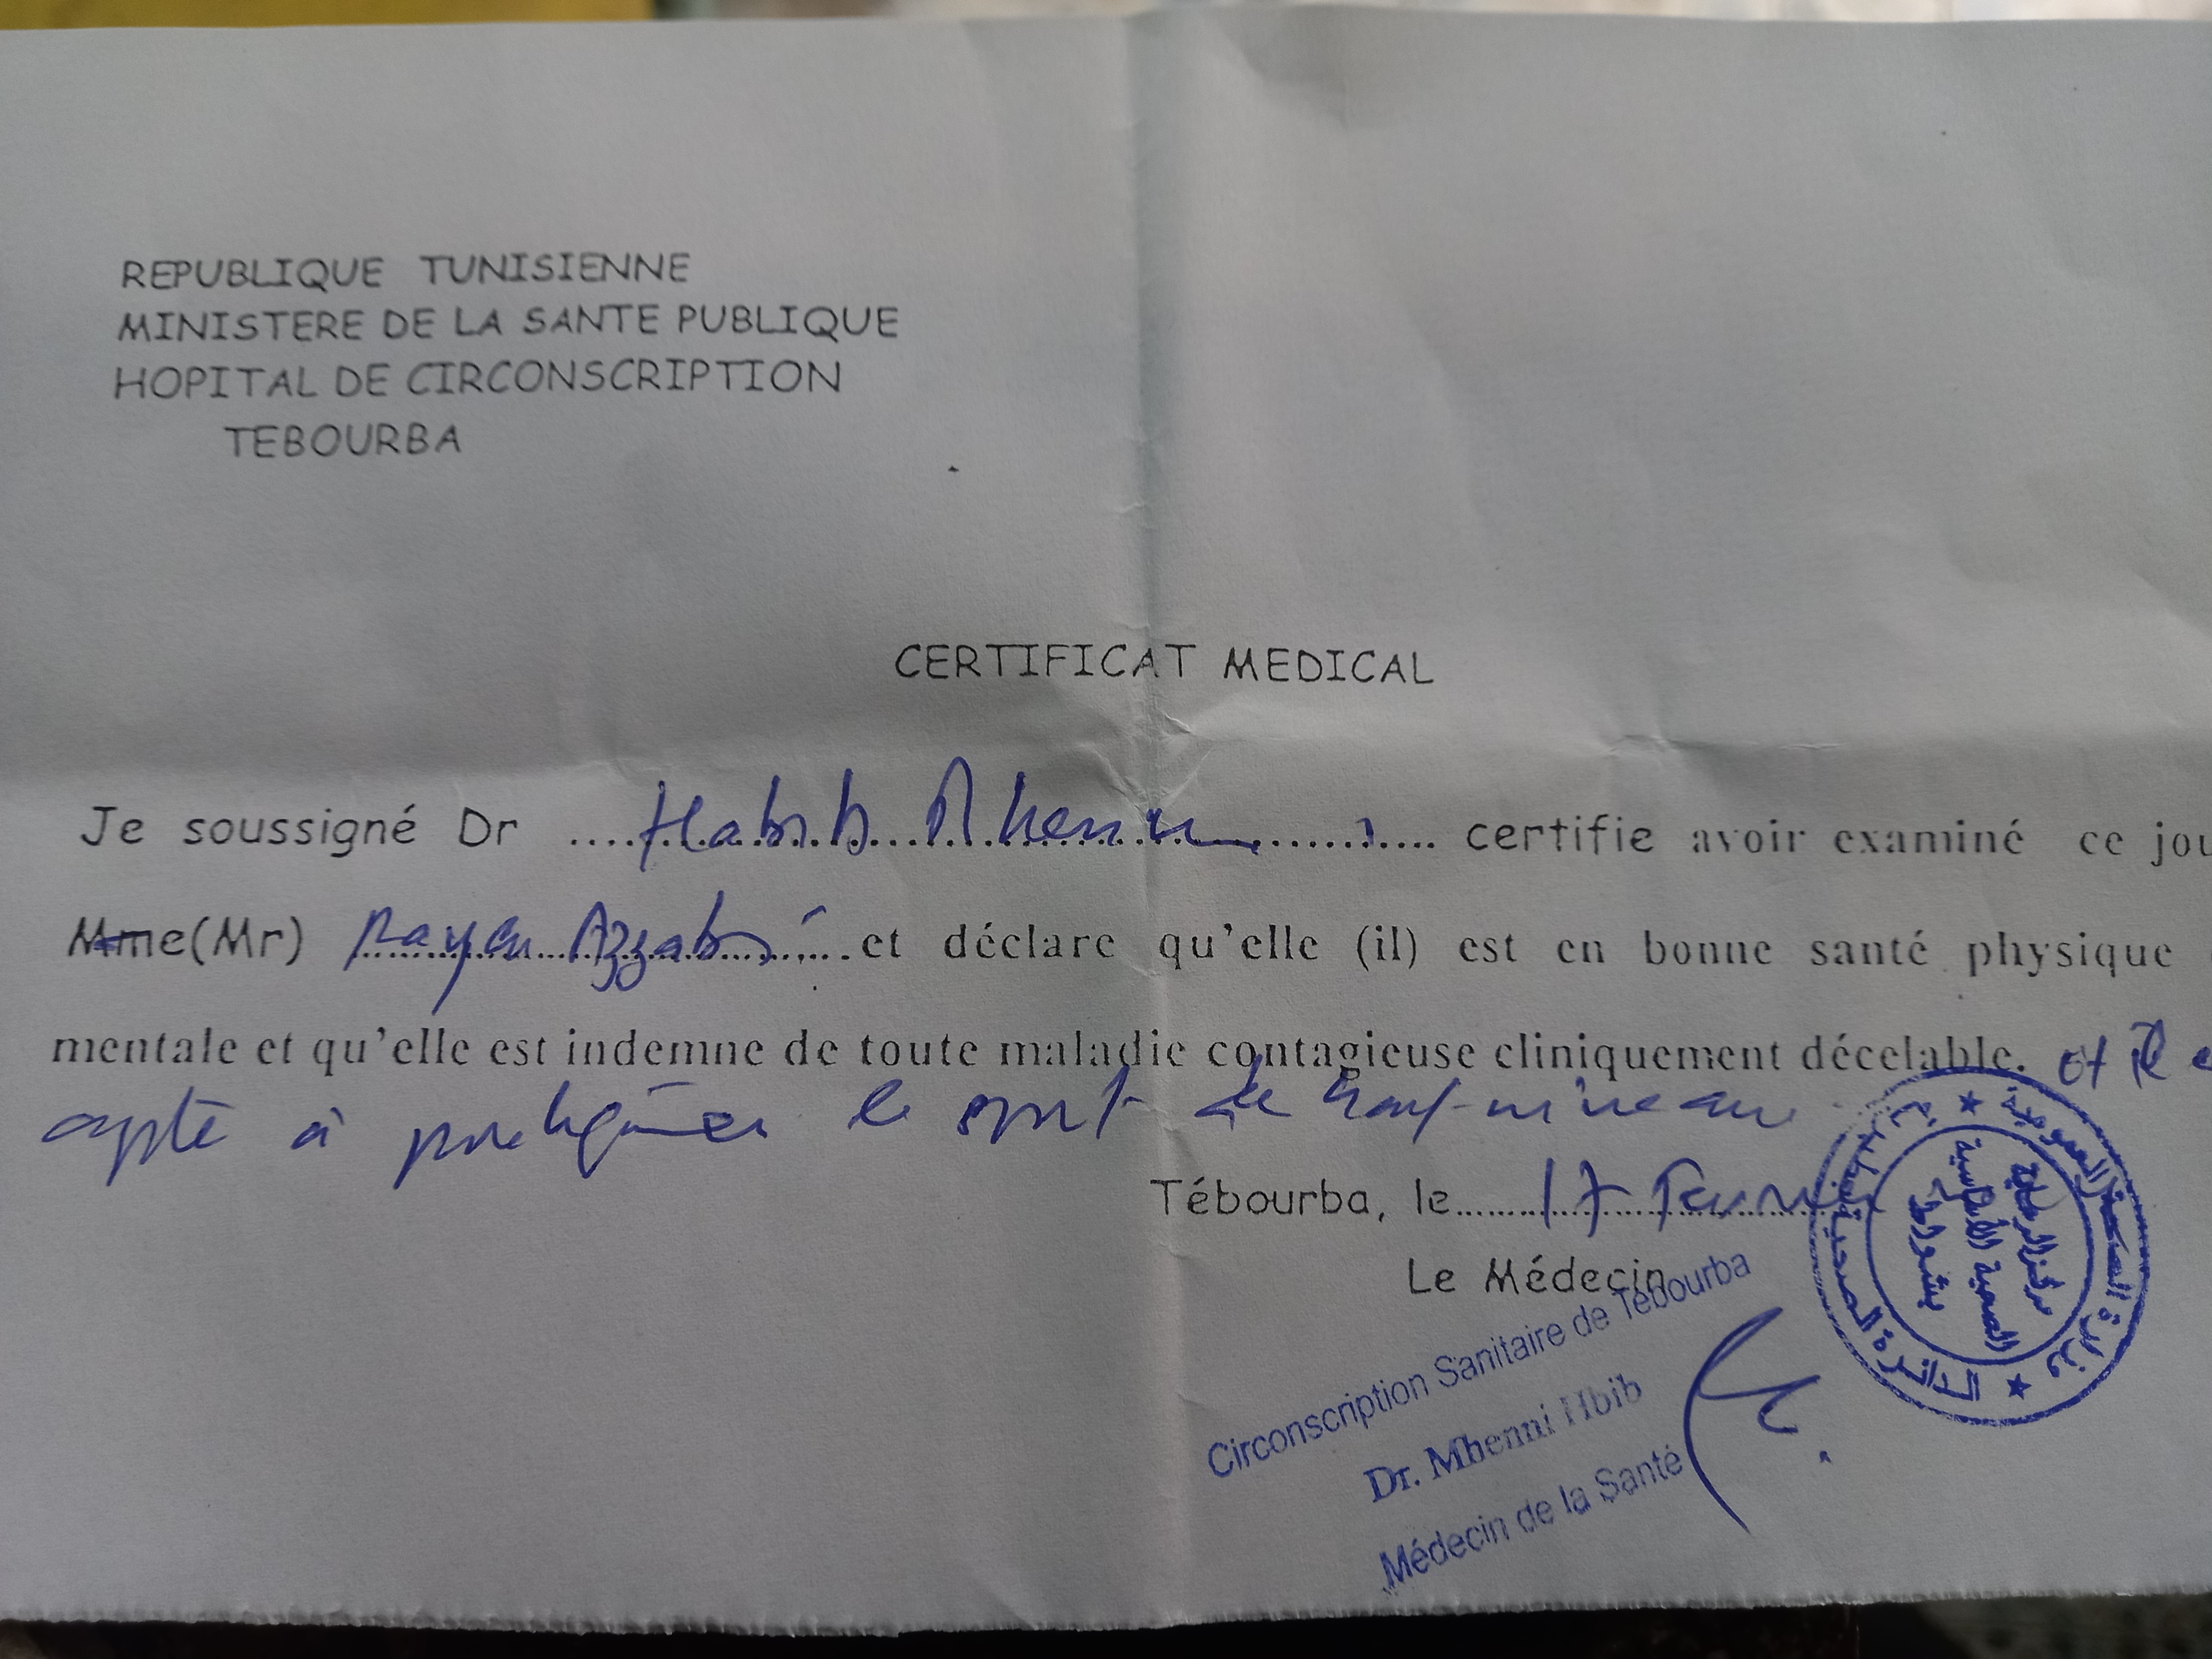 REPUBLIQUE TUNISIENNE
MINISTERE DE LA SANTE PUBLIQUE
HOPITAL DE CIRCONSCRIPTION
TEBOURBA
CERTIFICAT MEDICAL
Je soussigné Dr .... Habib Mhenni .... certifie avoir examiné ce jou
Mme(Mr) Rayen Azzabi et déclare qu'elle (il) est en bonne santé physique
mentale et qu'elle est indemne de toute maladie contagieuse cliniquement décelable. et il e
apte à pratiquer le sport de haut niveau
Tébourba, le 17
Le Médecin
Circonscription Sanitaire de Tébourba
Dr. Mhenni Hbib
Médecin de la Santé
وزارة الصحة العمومية
الدائرة الصحية بطبربة
مركز الرعاية
الصحية الأساسية
بشواط